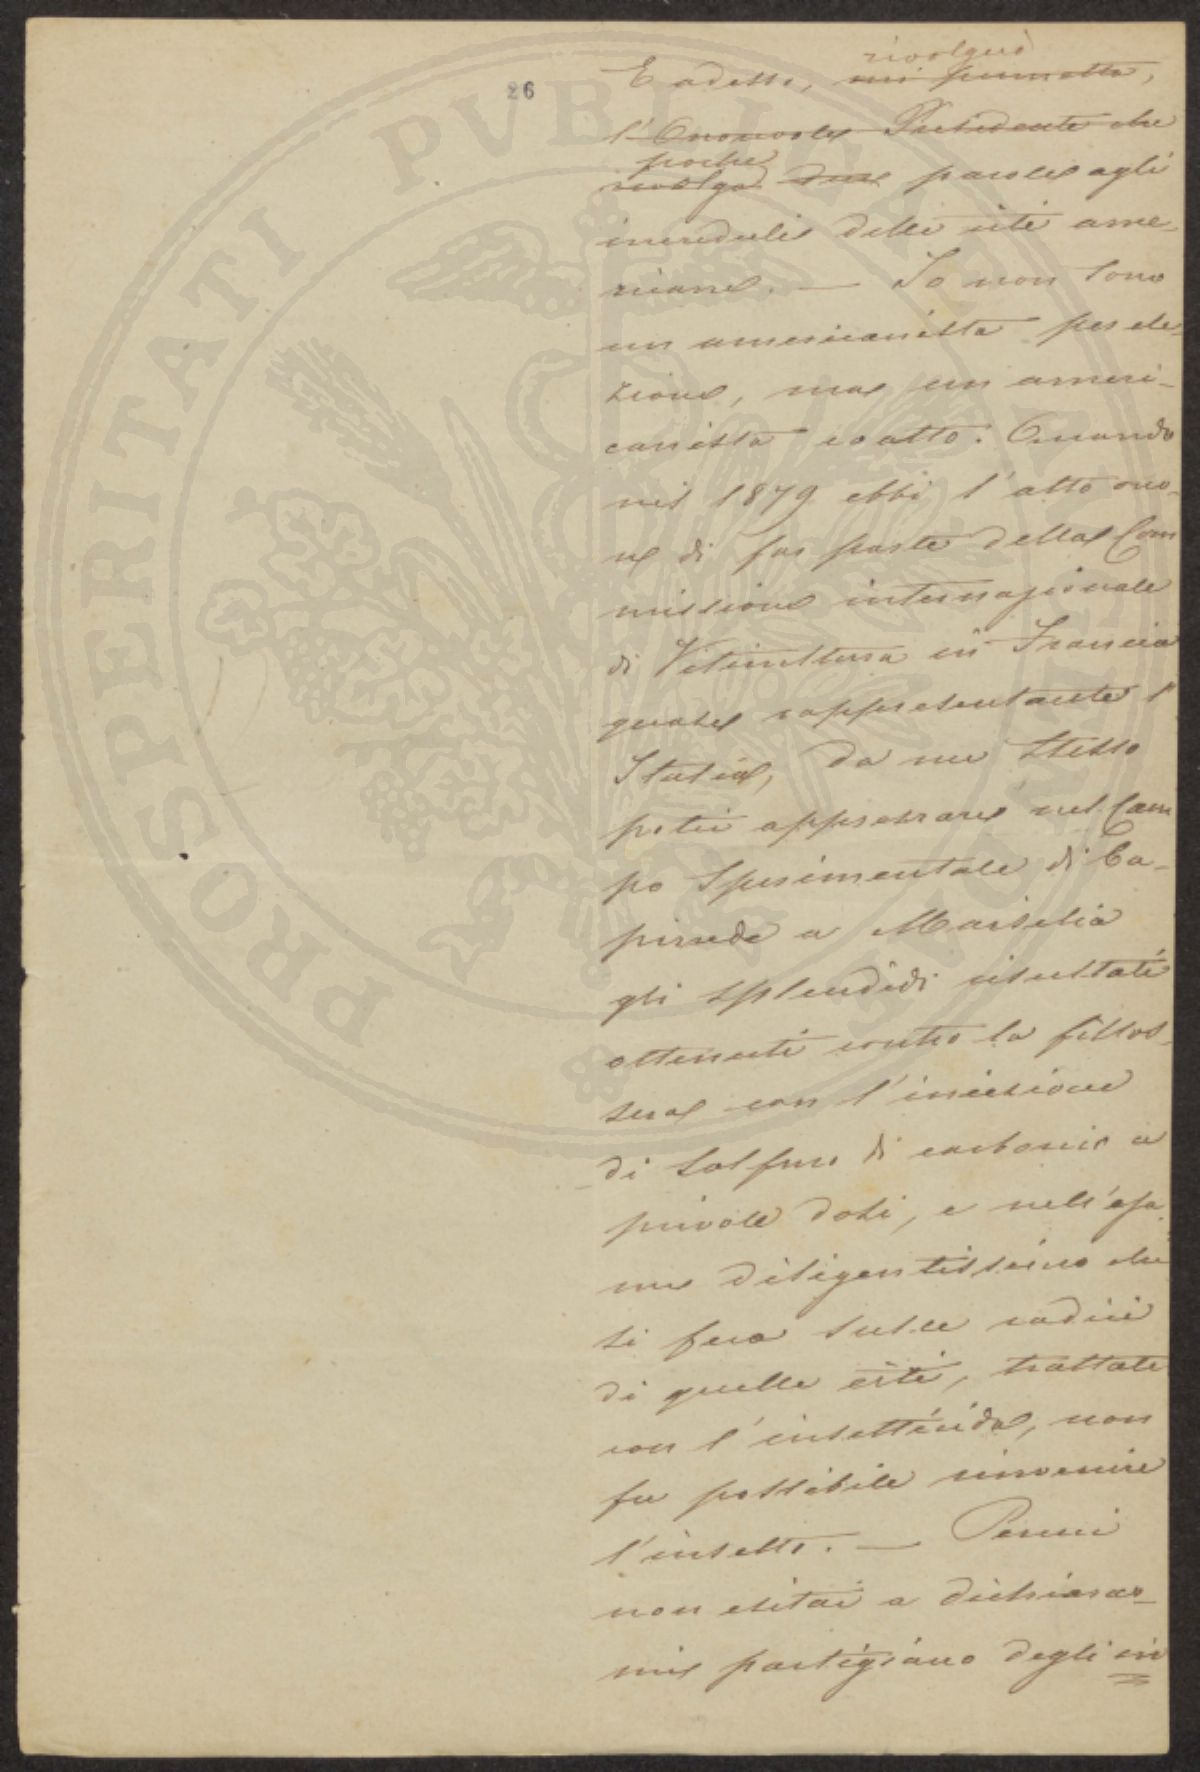 26
rivolgerò
E adesso, mi permetta,
l'Onorevole Presidente che
poche
rivolga due parole agli
increduli delle viti ame-
ricane. — Io non sono
un americanista per ele-
zione, ma un ameri-
canista coatto. Quando
nel 1879 ebbi l'alto ono-
re di far parte della Com
missione internazionale
di Viticultura in Francia
quale rappresentante l'
Italia, da me stesso
potei apprezzare nel Cam
po Sperimentale di Ca-
pirede a Marsilia
gli splendidi risultati
ottenuti contro la fillos-
sera con l'iniezione
di solfuro di carbonio a
piccole dosi, e nell'esa
me diligentissimo che
si fece sulle radici
di quelle viti, trattate
con l'insetticida, non
fu possibile rinvenire
l'insetto. — Percui
non esitai a dichiarar-
mi partigiano degli in
PROSPERITATI PVBLICAE